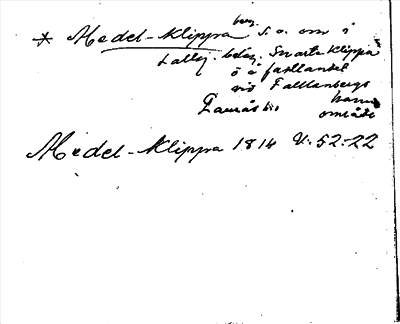 * Medel-Klippa beg. S. o. om i
Lallaj. beläg. Svarta Klippa
ö å fastlandet
vid Falkenbergs
hamn
område
Medel-Klippa 1814 V: 52: 22